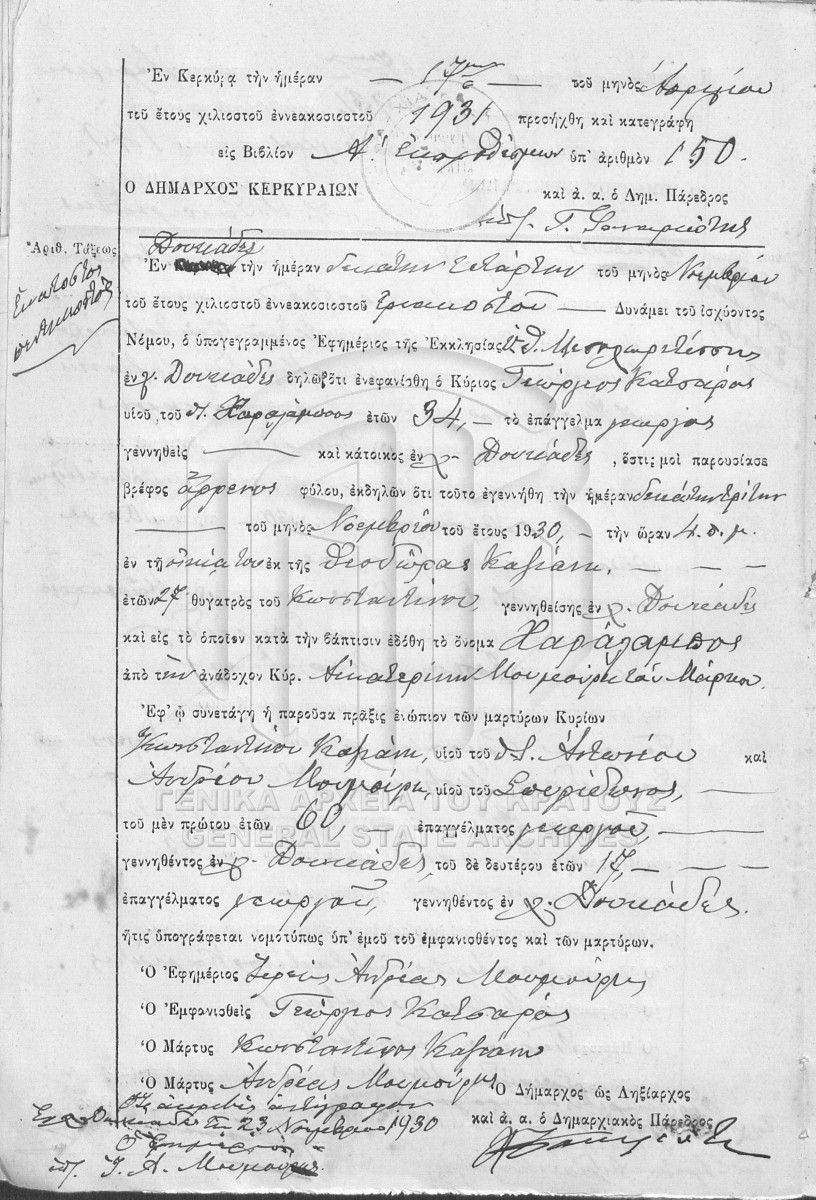 Ἐν Κερκύρᾳ τὴν ἡμέραν — 17ην — τοῦ μηνὸς Ἀπριλίου
τοῦ ἔτους χιλιοστοῦ ἐννεακοσιοστοῦ 1931 προσήχθη καὶ κατεγράφη
εἰς Βιβλίον Α΄. ὑπ᾽ ἀριθμὸν 150.
Ο ΔΗΜΑΡΧΟΣ ΚΕΡΚΥΡΑΙΩΝ
καὶ ἀ. α. ὁ Δημ. Πάρεδρος
Γ.
Ἀριθ. Τάξεως
Ἑκατοστὸς
πεντηκοστὸς
Δουκάδες
Ἐν τὴν ἡμέραν δεκάτην τετάρτην τοῦ μηνὸς Νοεμβρίου
τοῦ ἔτους χιλιοστοῦ ἐννεακοσιοστοῦ τριακοστοῦ — Δυνάμει τοῦ ἰσχύοντος
Νόμου, ὁ ὑπογεγραμμένος Ἐφημέριος τῆς Ἐκκλησίας
ἐν χ. Δουκάδες δηλῶ ὅτι ἐνεφανίσθη ὁ Κύριος Γεώργιος Κατσαρὸς
υἱοῦ τοῦ Χαραλάμπους ἐτῶν 34, — τὸ ἐπάγγελμα γεωργὸς
γεννηθεὶς — καὶ κάτοικος ἐν χ. Δουκάδες, ὅστις μοὶ παρουσίασε
βρέφος ἄρρενος φύλου, ἐκδηλῶν ὅτι τοῦτο ἐγεννήθη τὴν ἡμέραν δεκάτην τρίτην
— τοῦ μηνὸς Νοεμβρίου τοῦ ἔτους 1930, — τὴν ὥραν 4. π. μ.
ἐν τῇ οἰκίᾳ του ἐκ τῆς Θεοδώρας Καβιάνη, — — —
ἐτῶν 27 θυγατρὸς τοῦ Κωσταντίνου, γεννηθείσης ἐν χ. Δουκάδες
καὶ εἰς τὸ ὁποῖον κατὰ τὴν βάπτισιν ἐδόθη τὸ ὄνομα Χαράλαμπος
ἀπὸ τὴν ἀνάδοχον Κύρ. Αἰκατερίνην Μουμούρη τοῦ Μάρκου.
Ἐφ᾽ ᾧ συνετάγη ἡ παροῦσα πρᾶξις ἐνώπιον τῶν μαρτύρων Κυρίων
Κωνσταντίνου Καβιάνη, υἱοῦ τοῦ Ἀντωνίου καὶ
Ἀνδρέου Μουμούρη, υἱοῦ τοῦ Σπυρίδωνος, —
ΓΕΝΙΚΑ ΑΡΧΕΙΑ ΤΟΥ ΚΡΑΤΟΥΣ
τοῦ μὲν πρώτου ἐτῶν 60, — ἐπαγγέλματος γεωργοῦ, —
GENERAL STATE ARCHIVES
γεννηθέντος ἐν χ. Δουκάδες, τοῦ δὲ δευτέρου ἐτῶν 17, — — —
ἐπαγγέλματος γεωργοῦ, γεννηθέντος ἐν χ. Δουκάδες.
ἥτις ὑπογράφεται νομοτύπως ὑπ᾽ ἐμοῦ τοῦ ἐμφανισθέντος καὶ τῶν μαρτύρων.
Ὁ Ἐφημέριος Ἱερεὺς Ἀνδρέας Μουμούρης
Ὁ Ἐμφανισθεὶς Γεώργιος Κατσαρὸς
Ὁ Μάρτυς Κωνσταντῖνος Καβιάνη
Ὁ Μάρτυς Ἀνδρέας Μουμούρης
Ὁ Δήμαρχος ὡς Ληξίαρχος
ἀκριβὲς ἀντίγραφον
καὶ ἀ. α. ὁ Δημαρχιακὸς Πάρεδρος
Ἐν Δουκάδες τῇ 23 Νοεμβρίου 1930
Ὁ Ἐφημέριος
Ἱ. Α. Μουμούρης